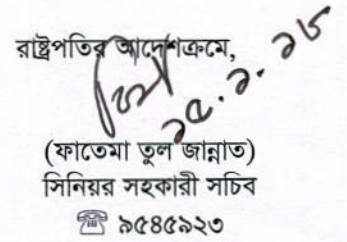 রাষ্ট্রপতির আদেশক্রমে,
১৫.১.১৮
(ফাতেমা তুল জান্নাত)
সিনিয়র সহকারী সচিব
☎ ৯৫৪৫৯২৩